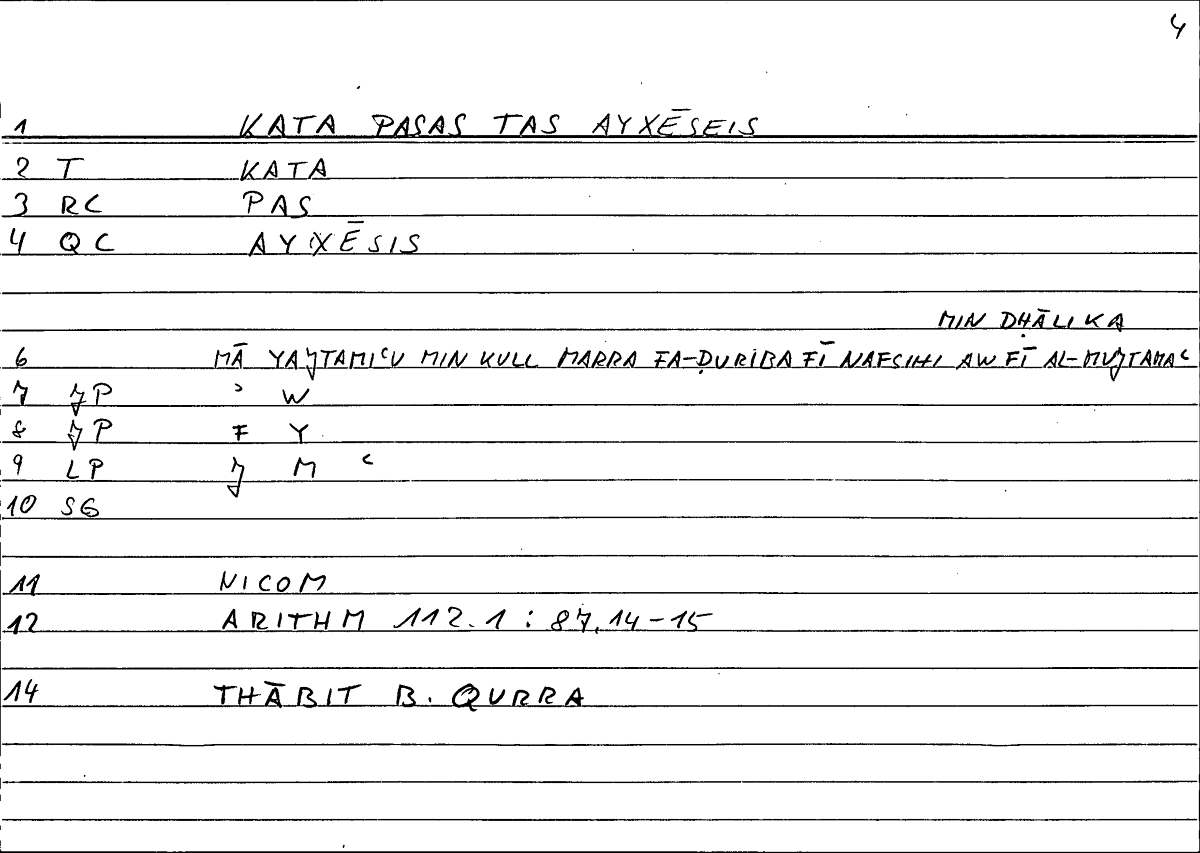 4
1 KATA PASAS TAS AYXĒSEIS
2 T KATA
3 RC PAS
4 QC AYXĒSIS
MIN DHĀLIKA
6 MĀ YAJTAMIʿU MIN KULL MARRA FA-ḌURIBA FĪ NAFSIHI AW FĪ AL-MUJTAMAʿ
7 JP ʾ W
8 JP F Y
9 LP J M ʿ
10 SG
11 NICOM
12 ARITHM 112.1 : 87,14-15
14 THĀBIT B. QURRA